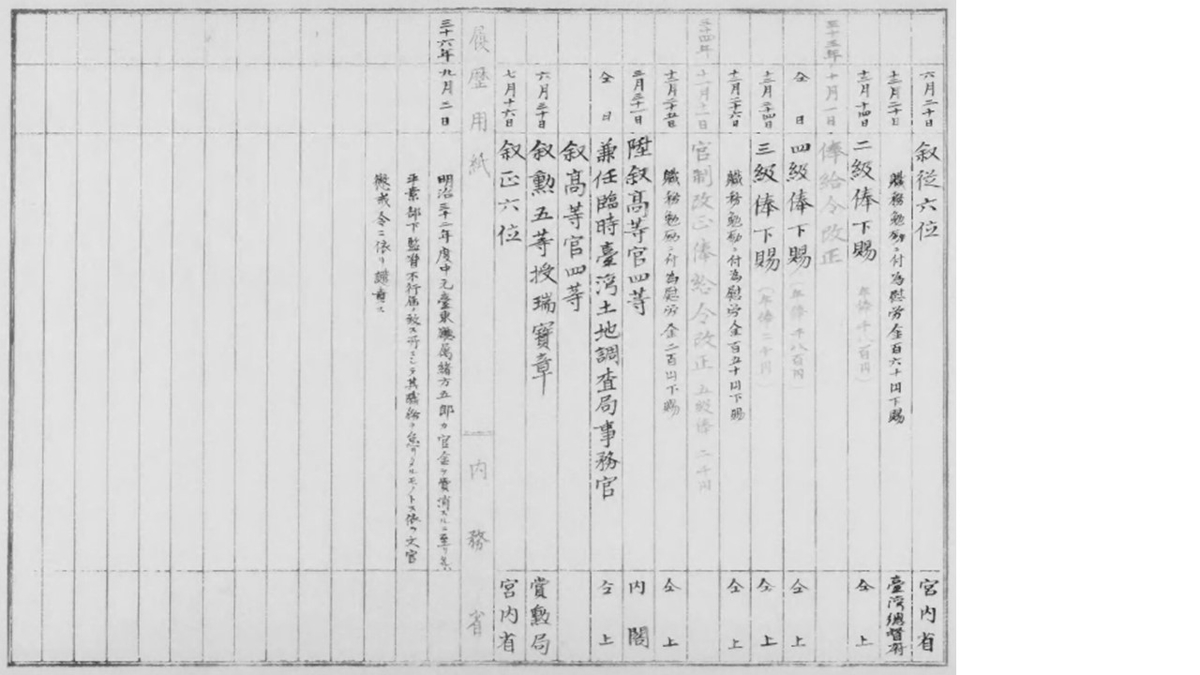 六月二十日 叙従六位 宮内省
十二月二十日 職務勉励ニ付為慰労金百六十円下賜 臺湾總督府
十二月十四日 二級俸下賜 仝上
三十五年十月一日 俸給令改正
仝日 四級俸下賜 仝上
十二月二十四日 三級俸下賜 仝上
十二月二十六日 職務勉励ニ付為慰労金百五十円下賜 仝上
三十四年十一月十一日 官制改正俸給令改正 五級俸 二千円
十二月二十五日 職務勉励ニ付為慰労金二百円下賜 仝上
三月三十一日 陞叙高等官四等 内閣
仝日 兼任臨時臺湾土地調査局事務官 仝上
叙高等官四等
六月三十日 叙勲五等授瑞寳章 賞勲局
七月十六日 叙正六位 宮内省
履歴用紙 内務省
三十六年九月二日 明治三十二年度中元臺東廳属緒方五郎カ官金ヲ費消スルニ至リ
平素部下監督不行届ノ致ス所ニシテ其職務ヲ怠リタルモノトス依テ文官
懲戒令ニ依リ譴責ス